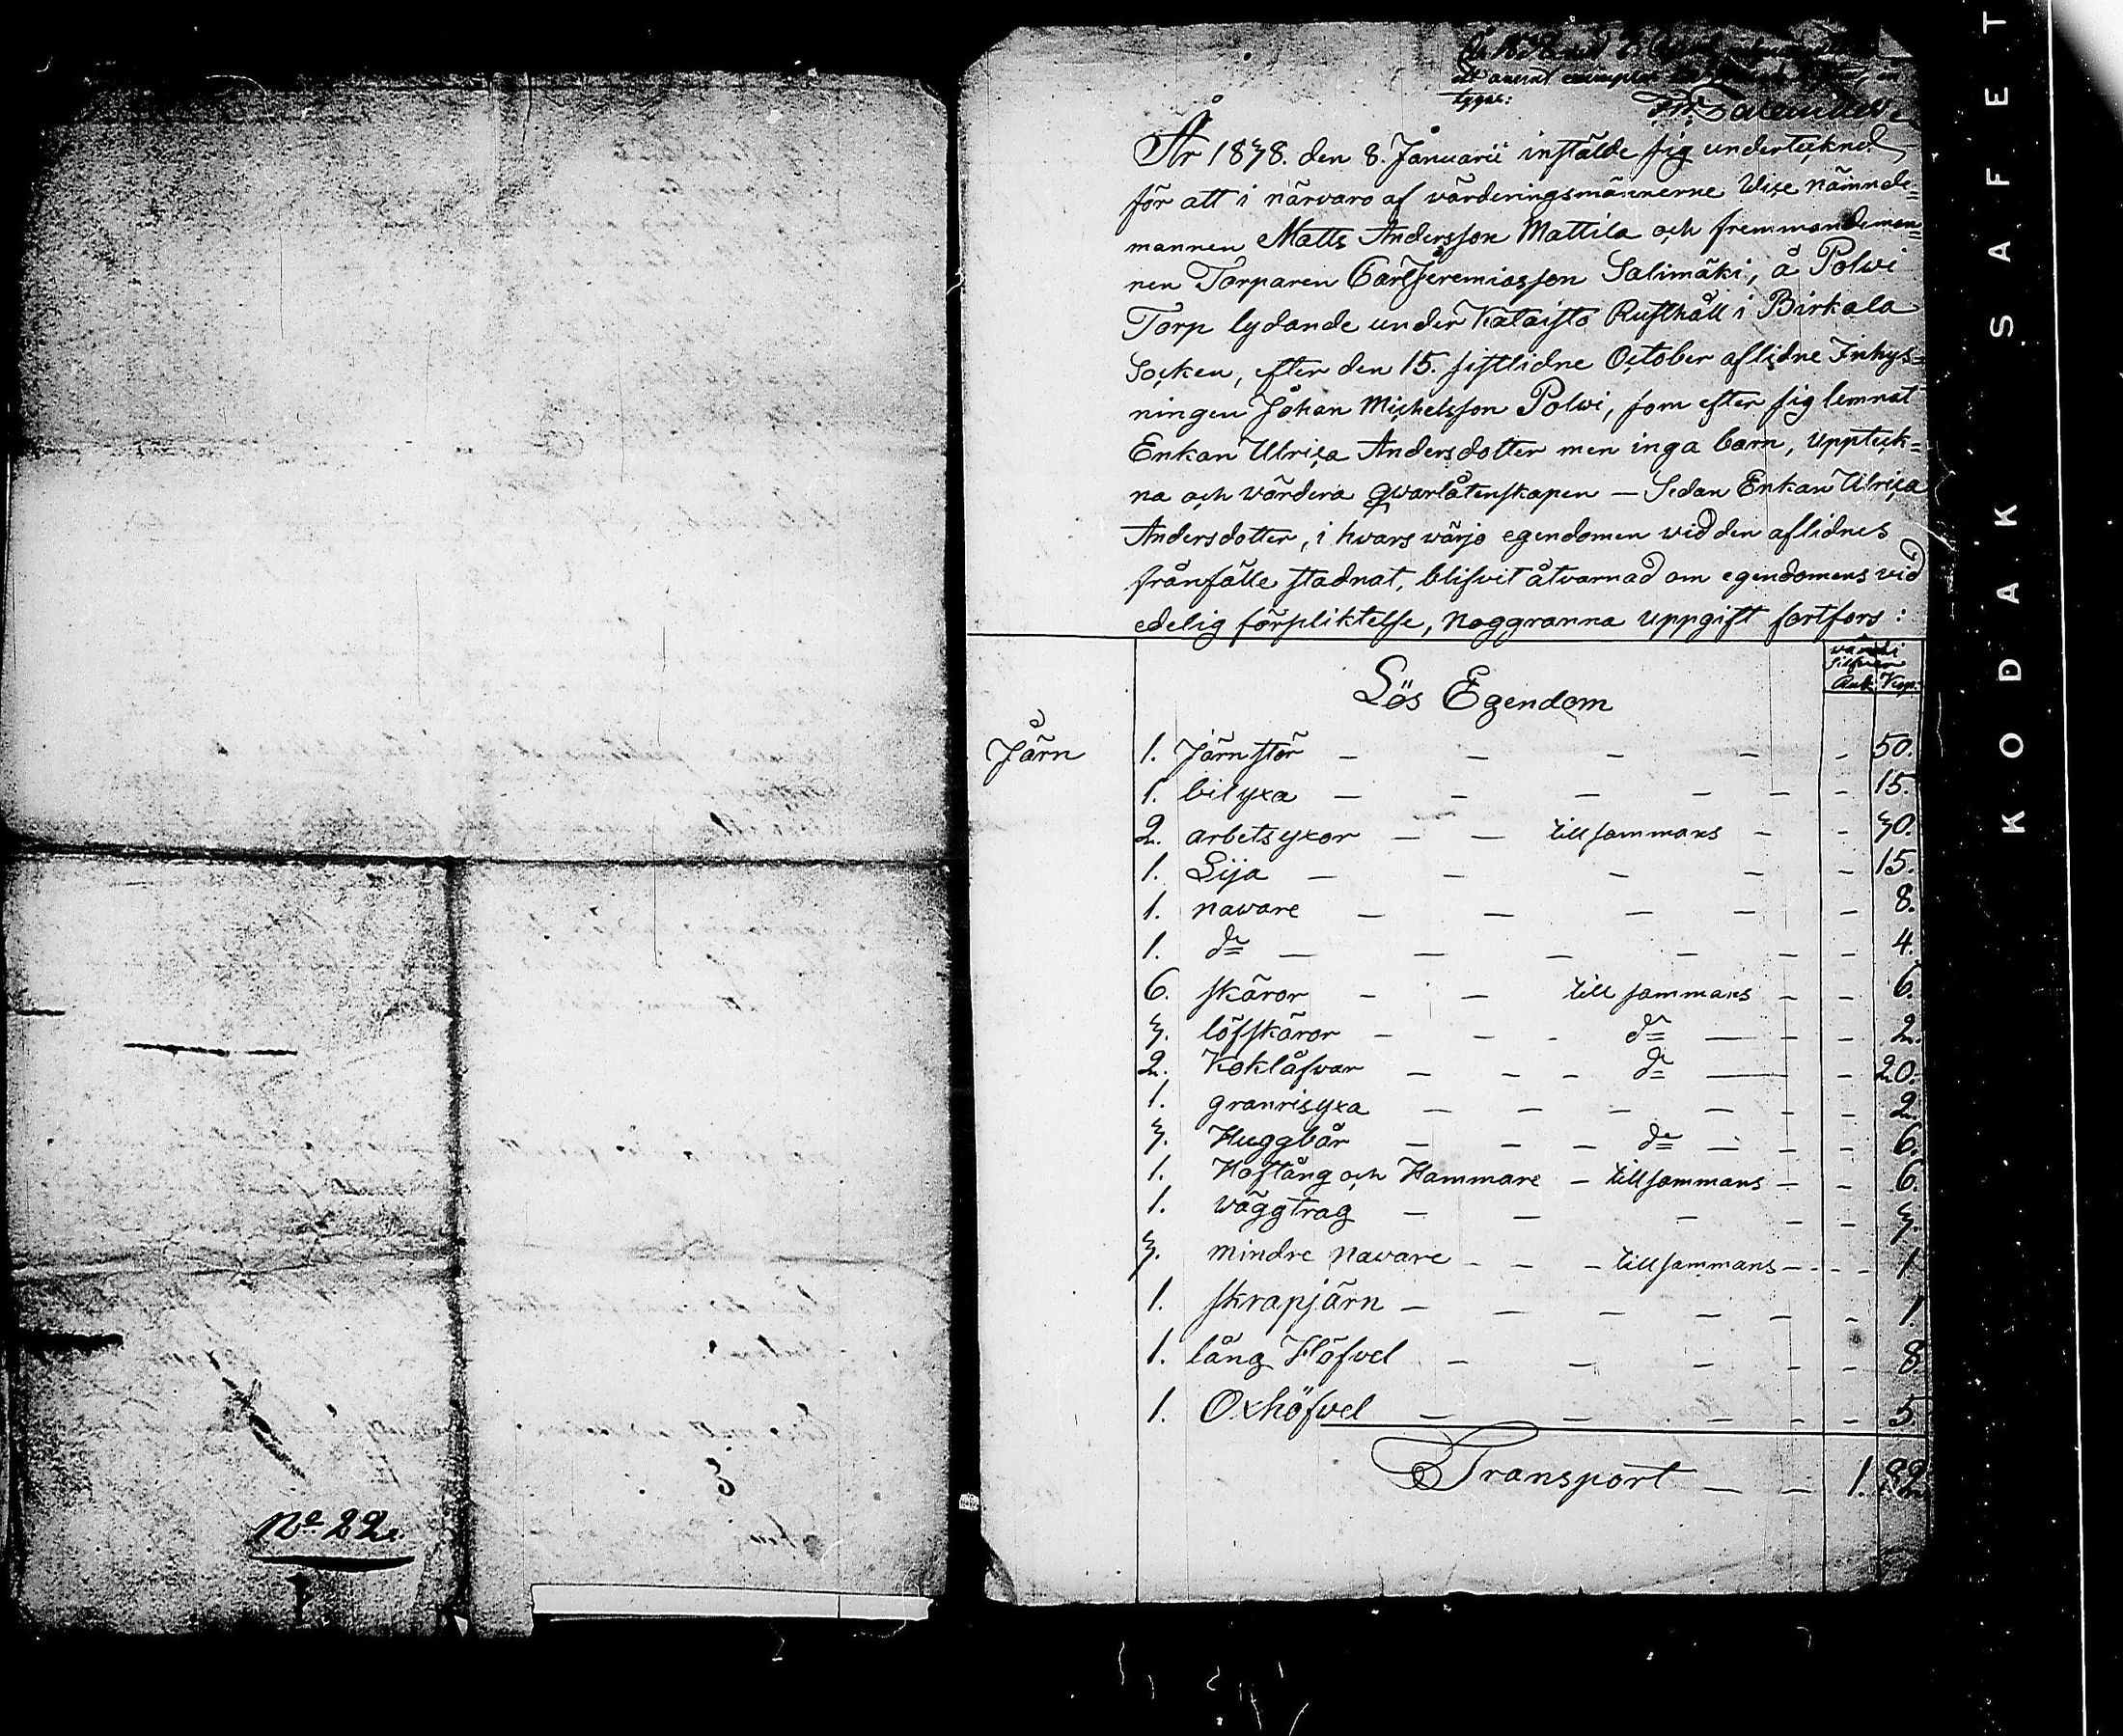 att annat exemplar
tygar:
År 1838. den 8. Januarii instälde sig undertecknad
för att i närvaro af värderingsmännerne Wice nämnde=
mannen Matts Andersson Mattila och fremmandeman=
nen Torparen Carl Jeremiasson Salimäki, å Polvi
Torp lydande under Kataisto Rusthåll i Birkala
Socken, efter den 15. sistlidne October aflidne Inhys=
ningen Johan Michelsson Polvi, som efter sig lemnat
Enkan Ulrica Andersdotter men inga barn, uppteck=
na och värdera qvarlåtenskapen — Sedan Enkan Ulrica
Andersdotter, i hvars värjo egendomen wid den aflidnes
frånfälle stadnat, blifvit åtvarnad om egendomens vid
edelig förpliktelse, noggranna uppgift fortfors:
värde i
Silfver
Rub. Kop.
Lös Egendom
Järn 1. Järnstör — — — — – 50.
1. bilyxa — — — — — – 15.
2. arbetsyxor — — tillsammans – – 30.
1. Lija — — — — – 15.
1. naware — — — — — 8.
1. do — — — — — – 4.
6. skäror – — till sammans – – 6.
3. löfskäror – – - do — – – 2.
2. Koklåfvar — – – do — – 20.
1. granrisyxa — — — — – – 2.
3. Huggbår — — – do — – – 6.
1. Hoftång och Hammare – tillsammans – – 6.
1. väggtrag — — — – – 3.
3. mindre naware – – – tillsammans – - - – 1
1. skrapjärn — — — — – – 1.
1. lång Höfvel — — — – – 8
1. Oxhöfvel — — — – – 5
Transport — — 1. 82
No 22.
KODAK SAFET